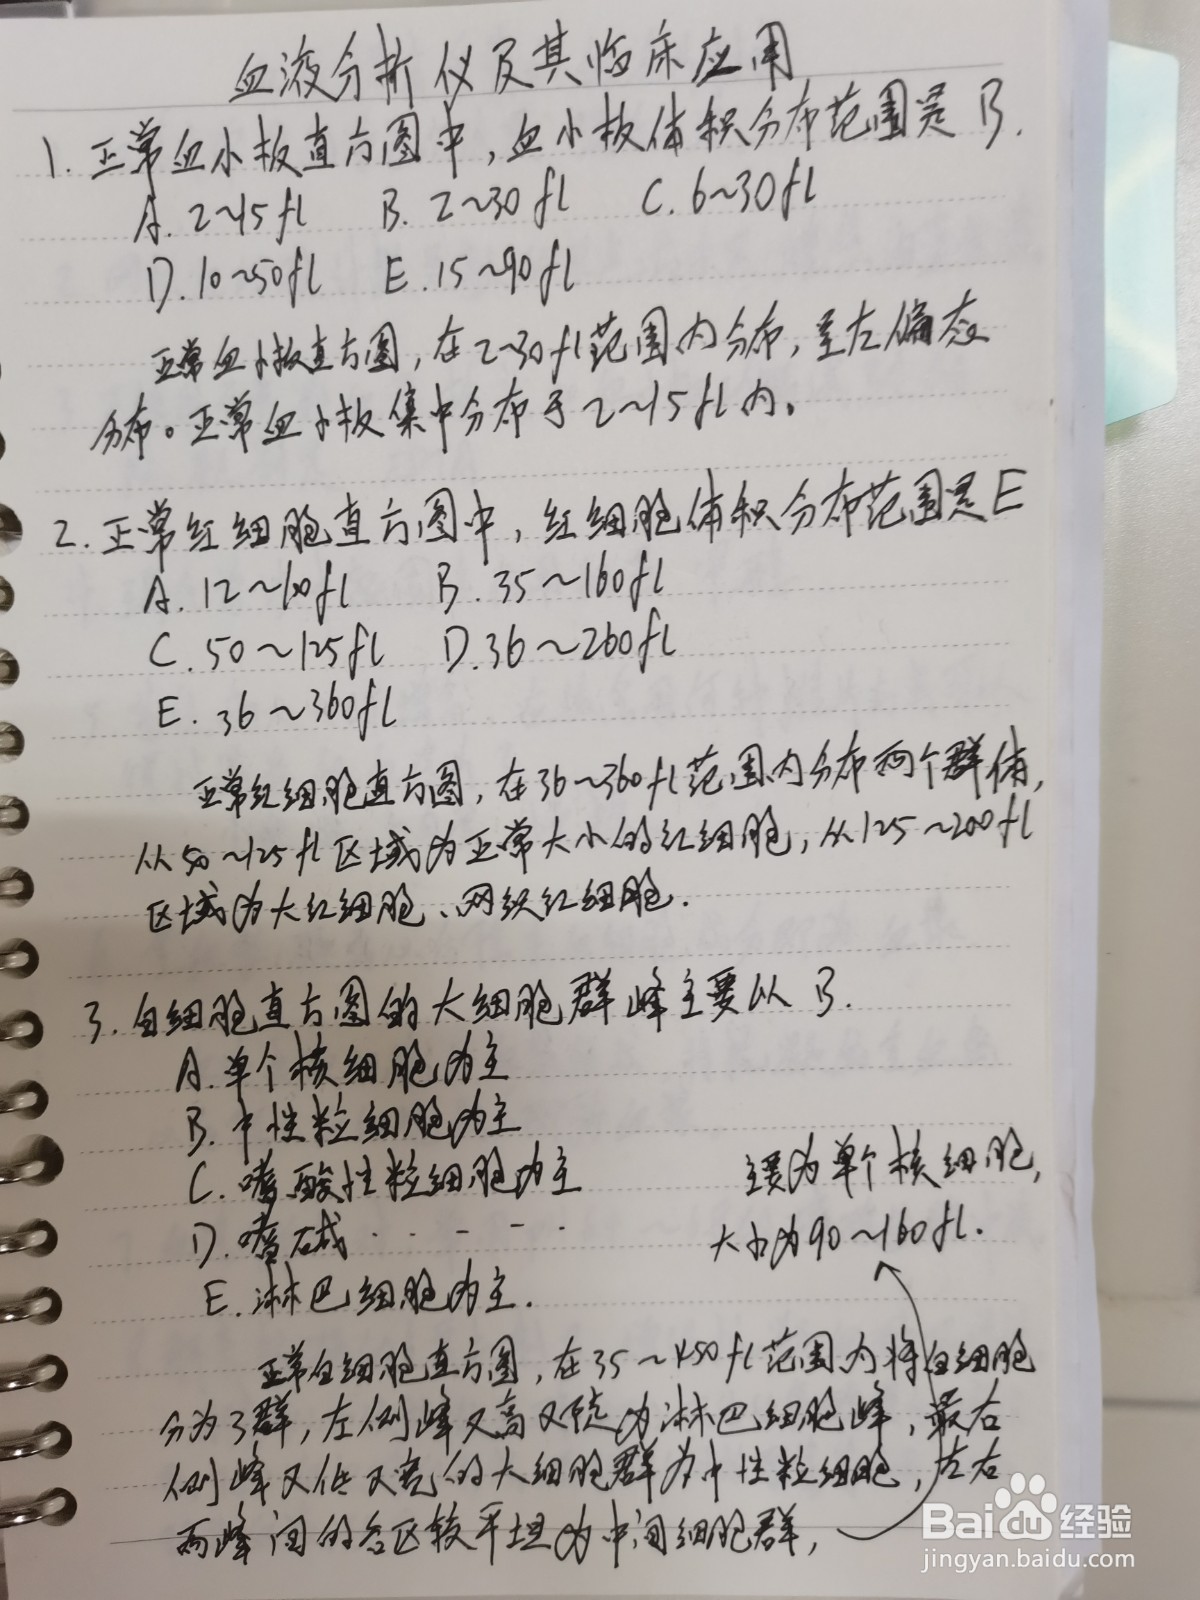 血液分析仪及其临床应用
1. 正常血小板直方图中，血小板体积分布范围是 B.
A. 2~15fl B. 2~30fl C. 6~30fl
D. 10~50fl E. 15~90fl
正常血小板直方图，在2~30fl范围内分布，呈左偏态
分布。正常血小板集中分布于2~15fl内。
2. 正常红细胞直方图中，红细胞体积分布范围是E
A. 12~100fl B. 35~160fl
C. 50~125fl D. 36~260fl
E. 36~360fl
正常红细胞直方图，在36~360fl范围内分布两个群体，
从50~125fl区域为正常大小的红细胞，从125~200fl
区域为大红细胞、网织红细胞.
3. 白细胞直方图的大细胞群峰主要以 B.
A. 单个核细胞为主
B. 中性粒细胞为主
C. 嗜酸性粒细胞为主
D. 嗜碱 · · - - ·
E. 淋巴细胞为主.
主要为单个核细胞，
大小为90~160fl.
正常白细胞直方图，在35~450fl范围内将白细胞
分为3群，左侧峰又高又陡为淋巴细胞峰，最右
侧峰又低又宽的大细胞群为中性粒细胞，左右
两峰间的谷区较平坦为中间细胞群，
Baidu经验
jingyan.baidu.com